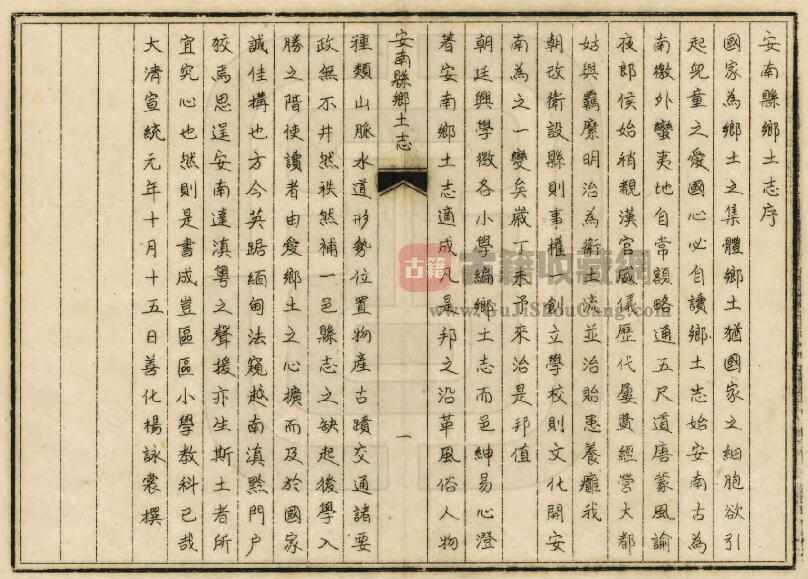 安南縣鄉土志序
國家為鄉土之集體鄉土猶國家之細胞欲引
起兒童之愛國心必自讀鄉土志始安南古為
南徼外蠻夷地自常頞略通五尺道唐蒙風諭
夜郎侯始稍覩漢官威儀歷代屢費經營大都
姑與羈縻明治為衛土流並治貽患養癰我
朝改衛設縣則事權一創立學校則文化開安
南為之一變矣歲丁未予來治是邦值
朝廷興學徵各小學編鄉土志而邑紳易心澄
著安南鄉土志適成凡是邦之沿革風俗人物
安南縣鄉土志
一
種類山脈水道形勢位置物產古蹟交通諸要
政無不井然秩然補一邑縣志之缺起後學入
勝之階使讀者由愛鄉土之心擴而及於國家
誠佳構也方今英踞緬甸法窺越南滇黔門戶
狡焉思逞安南達滇粵之聲援亦生斯土者所
宜究心也然則是書成豈區區小學教科已哉
大清宣統元年十月十五日善化楊詠裳撰
古籍
古籍收藏網
www.GuJiShouCang.com